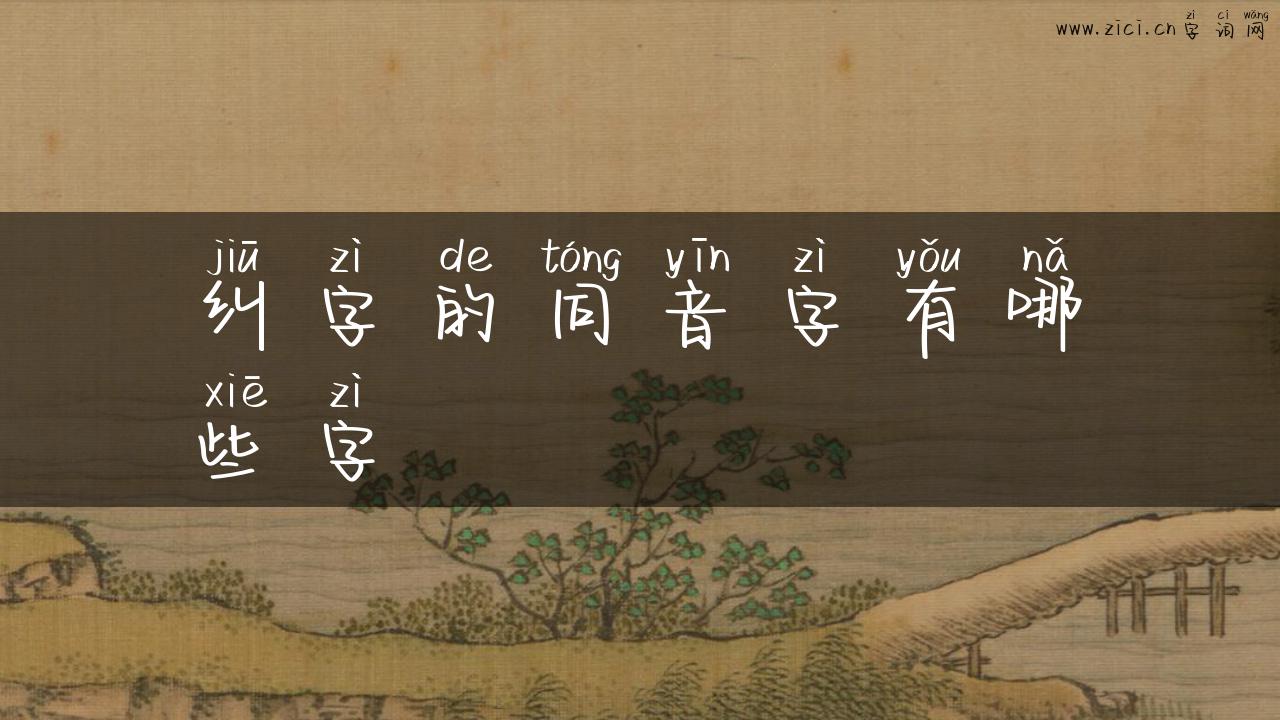 zì cí wǎng
www.zici.cn 字词网
jiū zì de tóng yīn zì yǒu nǎ
纠字的同音字有哪
xiē zì
些字